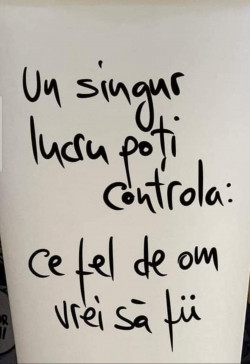 Un singur
lucru poți
controla:
ce fel de om
vrei să fii